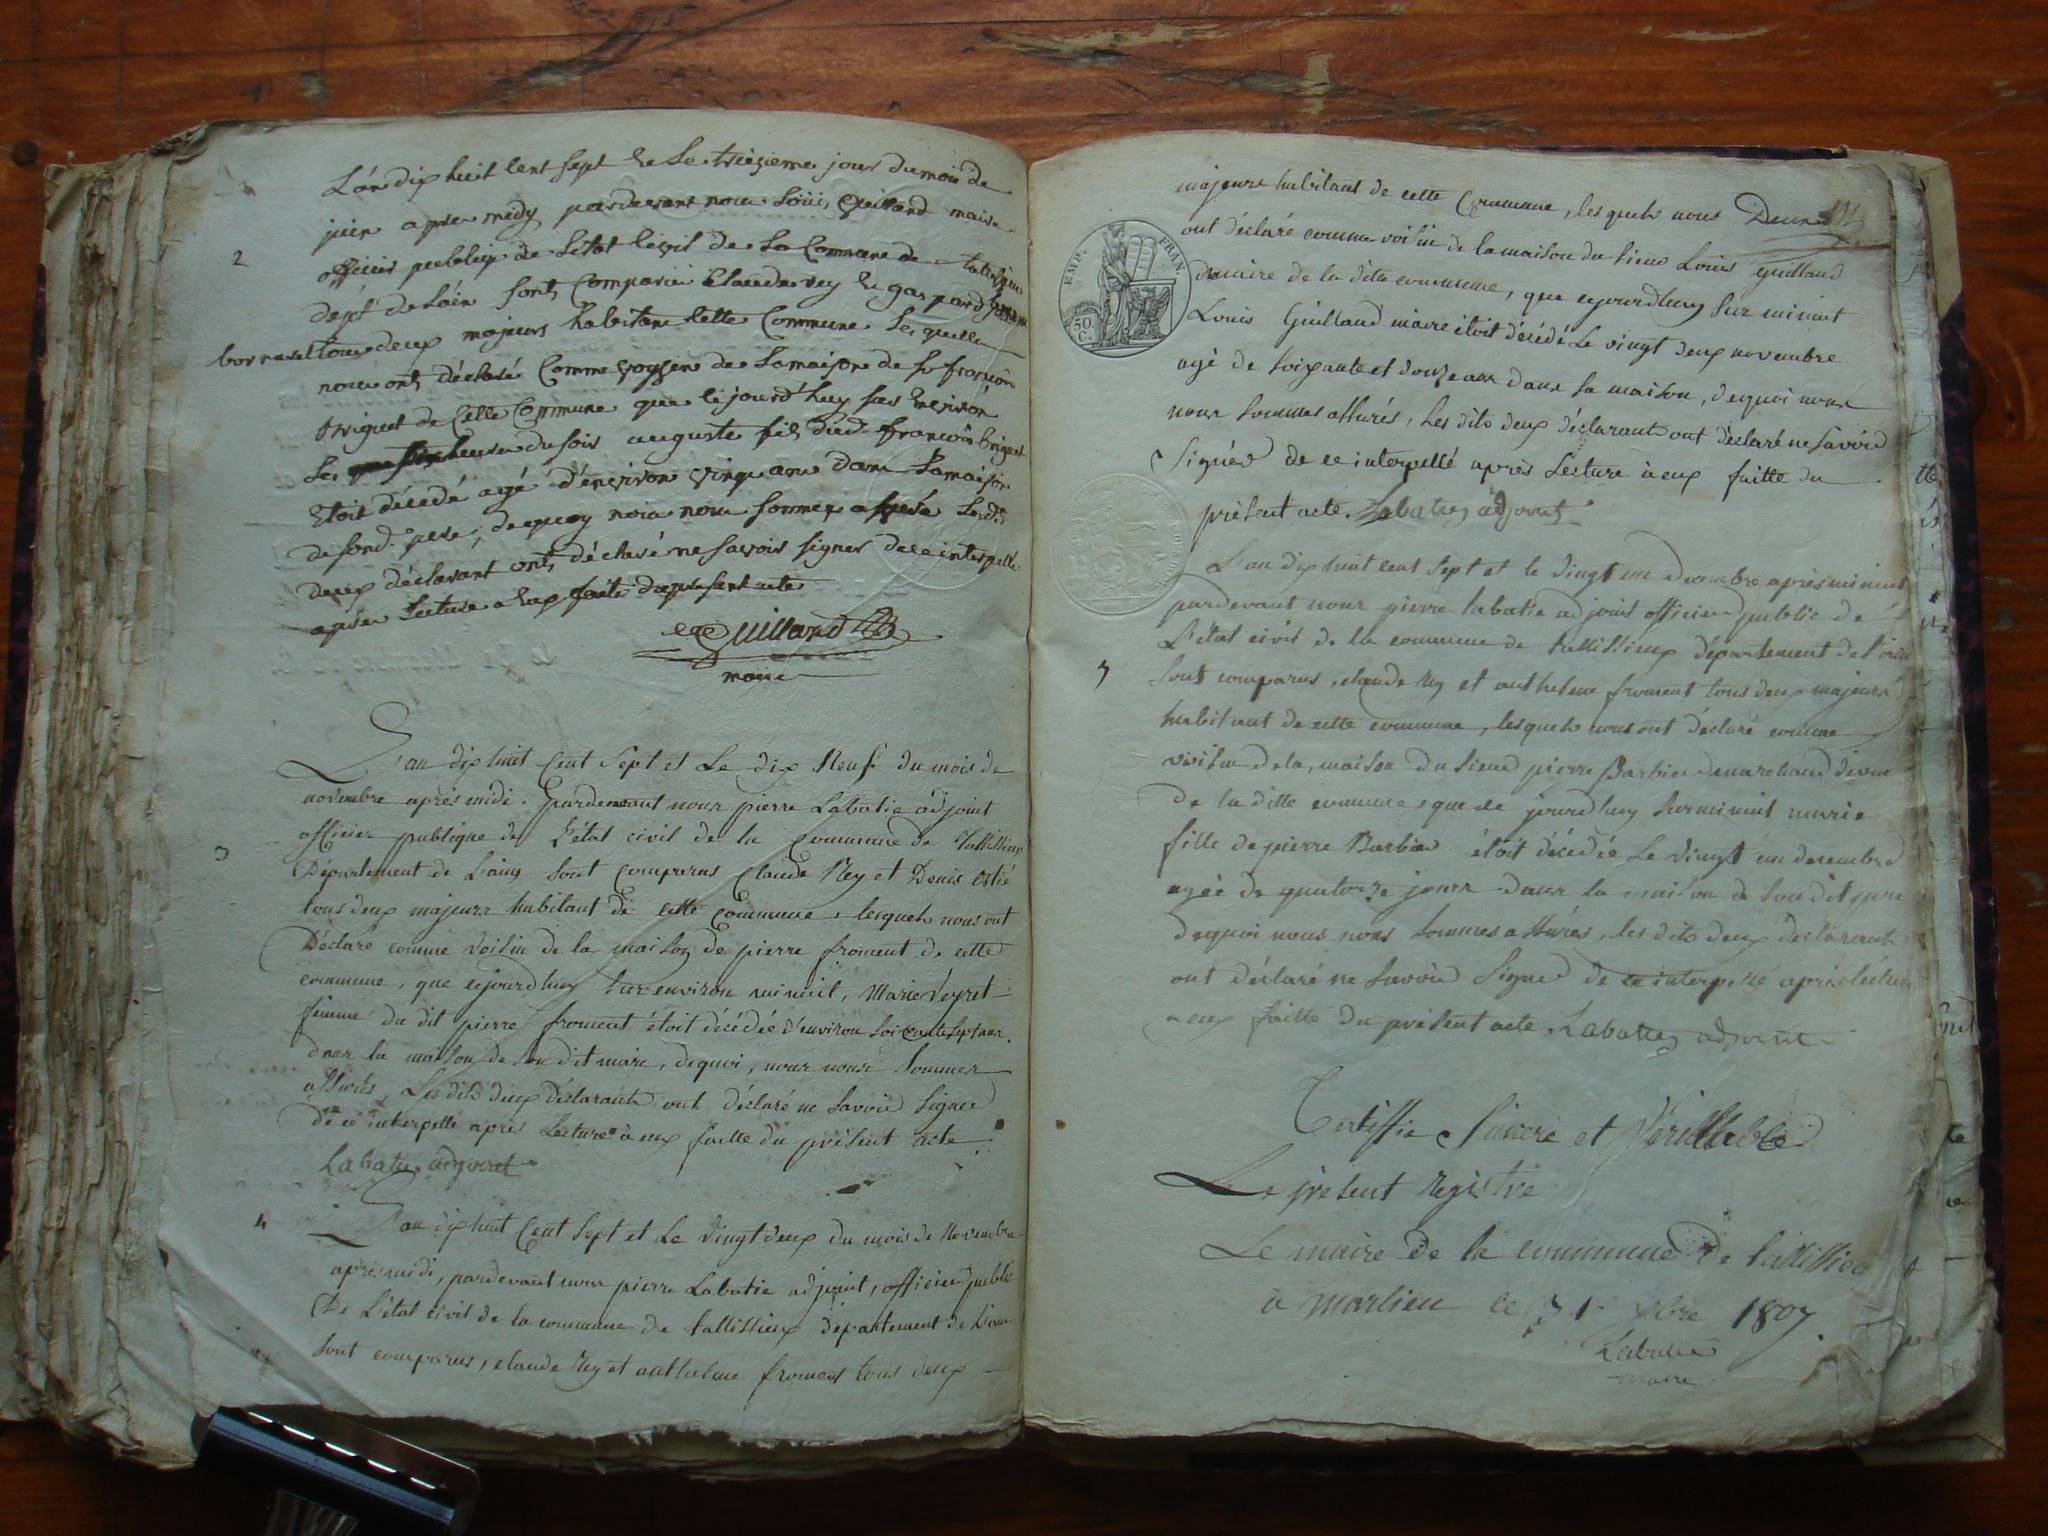 2
L'an dix huit Cent Sept & Le treizieme jour du mois de
juin apres midy pardevant nous Loüis Guilland maire
officier publiq de L'Etat Civil de La Commune de
dept de L'ain sont Comparü Claude rey & gaspard
bornarel tous deux majeurs habitans Cette Commune Les quelle
nous ont déclaré Comme voyzin de La maison de Sr françois
Briguet de Cette Commune que Cejourd'huy sur Environ
Les heures du soir auguste fils dud. françois briguet
Etoit décédé agé d'environ Cinq ans dans La maison
de sond. pere, de quoy nous nous sommes assuré Lesds
deux déclarant ont déclaré ne savoir signer de ce interpellé
apres Lecture a Eux faite du present acte
Guilland
maire
3
L'an dix huit Cent Sept et Le dix Neuf du mois de
novembre après midi. pardevant nous pierre Labatie adjoint
officier publique de L'état civil de la Commune de Tallissieux
Département de L'ain, sont Comparus Claude Rey et Denis
tous deux majeurs habitant de cette Commune, lesquels nous ont
Déclaré comme voisin de la maison de pierre froment de cette
commune, que cejourdhuy Sur environ minuit, Marie Veyret
femme du dit pierre froment étoit décédée d'environ soixante sept ans
dans la maison de son dit mari, dequoi, nous nous Sommes
assurés, Les dits deux déclarants ont déclaré ne Savoir Signer
de ce interpellé après Lecture à eux faitte du présent acte.
Labatie adjoint
4
L'an dix huit Cent Sept et Le Vingt deux du mois de Novembre
après midi, pardevant nous pierre Labatie adjoint, officier public
De L'état civil de la commune de tallissieux département de L'ain
sont comparus, claude Rey et anthelme froment tous deux
majeurs habitant de cette Commune, lesquels nous
ont déclaré comme voisin de la maison du Sieur Louis Guilland
maire de la dite commune, que cejourdhuy Sur minuit
Louis Guilland maire étoit décédé Le vingt deux novembre
agé de Soixante et douze ans dans Sa maison, dequoi nous
nous Sommes assurés, Les dits deux déclarants ont déclaré ne Savoir
Signer de ce interpellé après Lecture à eux faitte du
présent acte. Labatie adjoint
EMP. FRAN.
50
C.
5
L'an dix huit cent Sept et le Vingt un decembre après minuit
pardevant nous pierre labatie adjoint officier public de
L'état civil de la commune de tallissieux département de l'ain
Sont comparus, claude Rey et anthelme froment tous deux majeurs
habitant de cette commune, lesquels nous ont déclaré comme
voisin de la maison du Sieur pierre Barbier marchand
de la ditte commune, que ce jourdhuy Sur minuit marie
fille de pierre Barbier étoit décédée Le Vingt un decembre
agée de quatorze jours dans la maison de Son dit pere
dequoi nous nous Sommes assurés, les dits deux déclarants
ont déclaré ne Savoir Signer de ce interpellé après lecture
a eux faitte du présent acte. Labatie adjoint
Certiffie Sincere et Véritable
Le présent Registre
Le maire de la commune de tallissieu
à Marlieu ce 31 xbre 1807
Labatie
maire